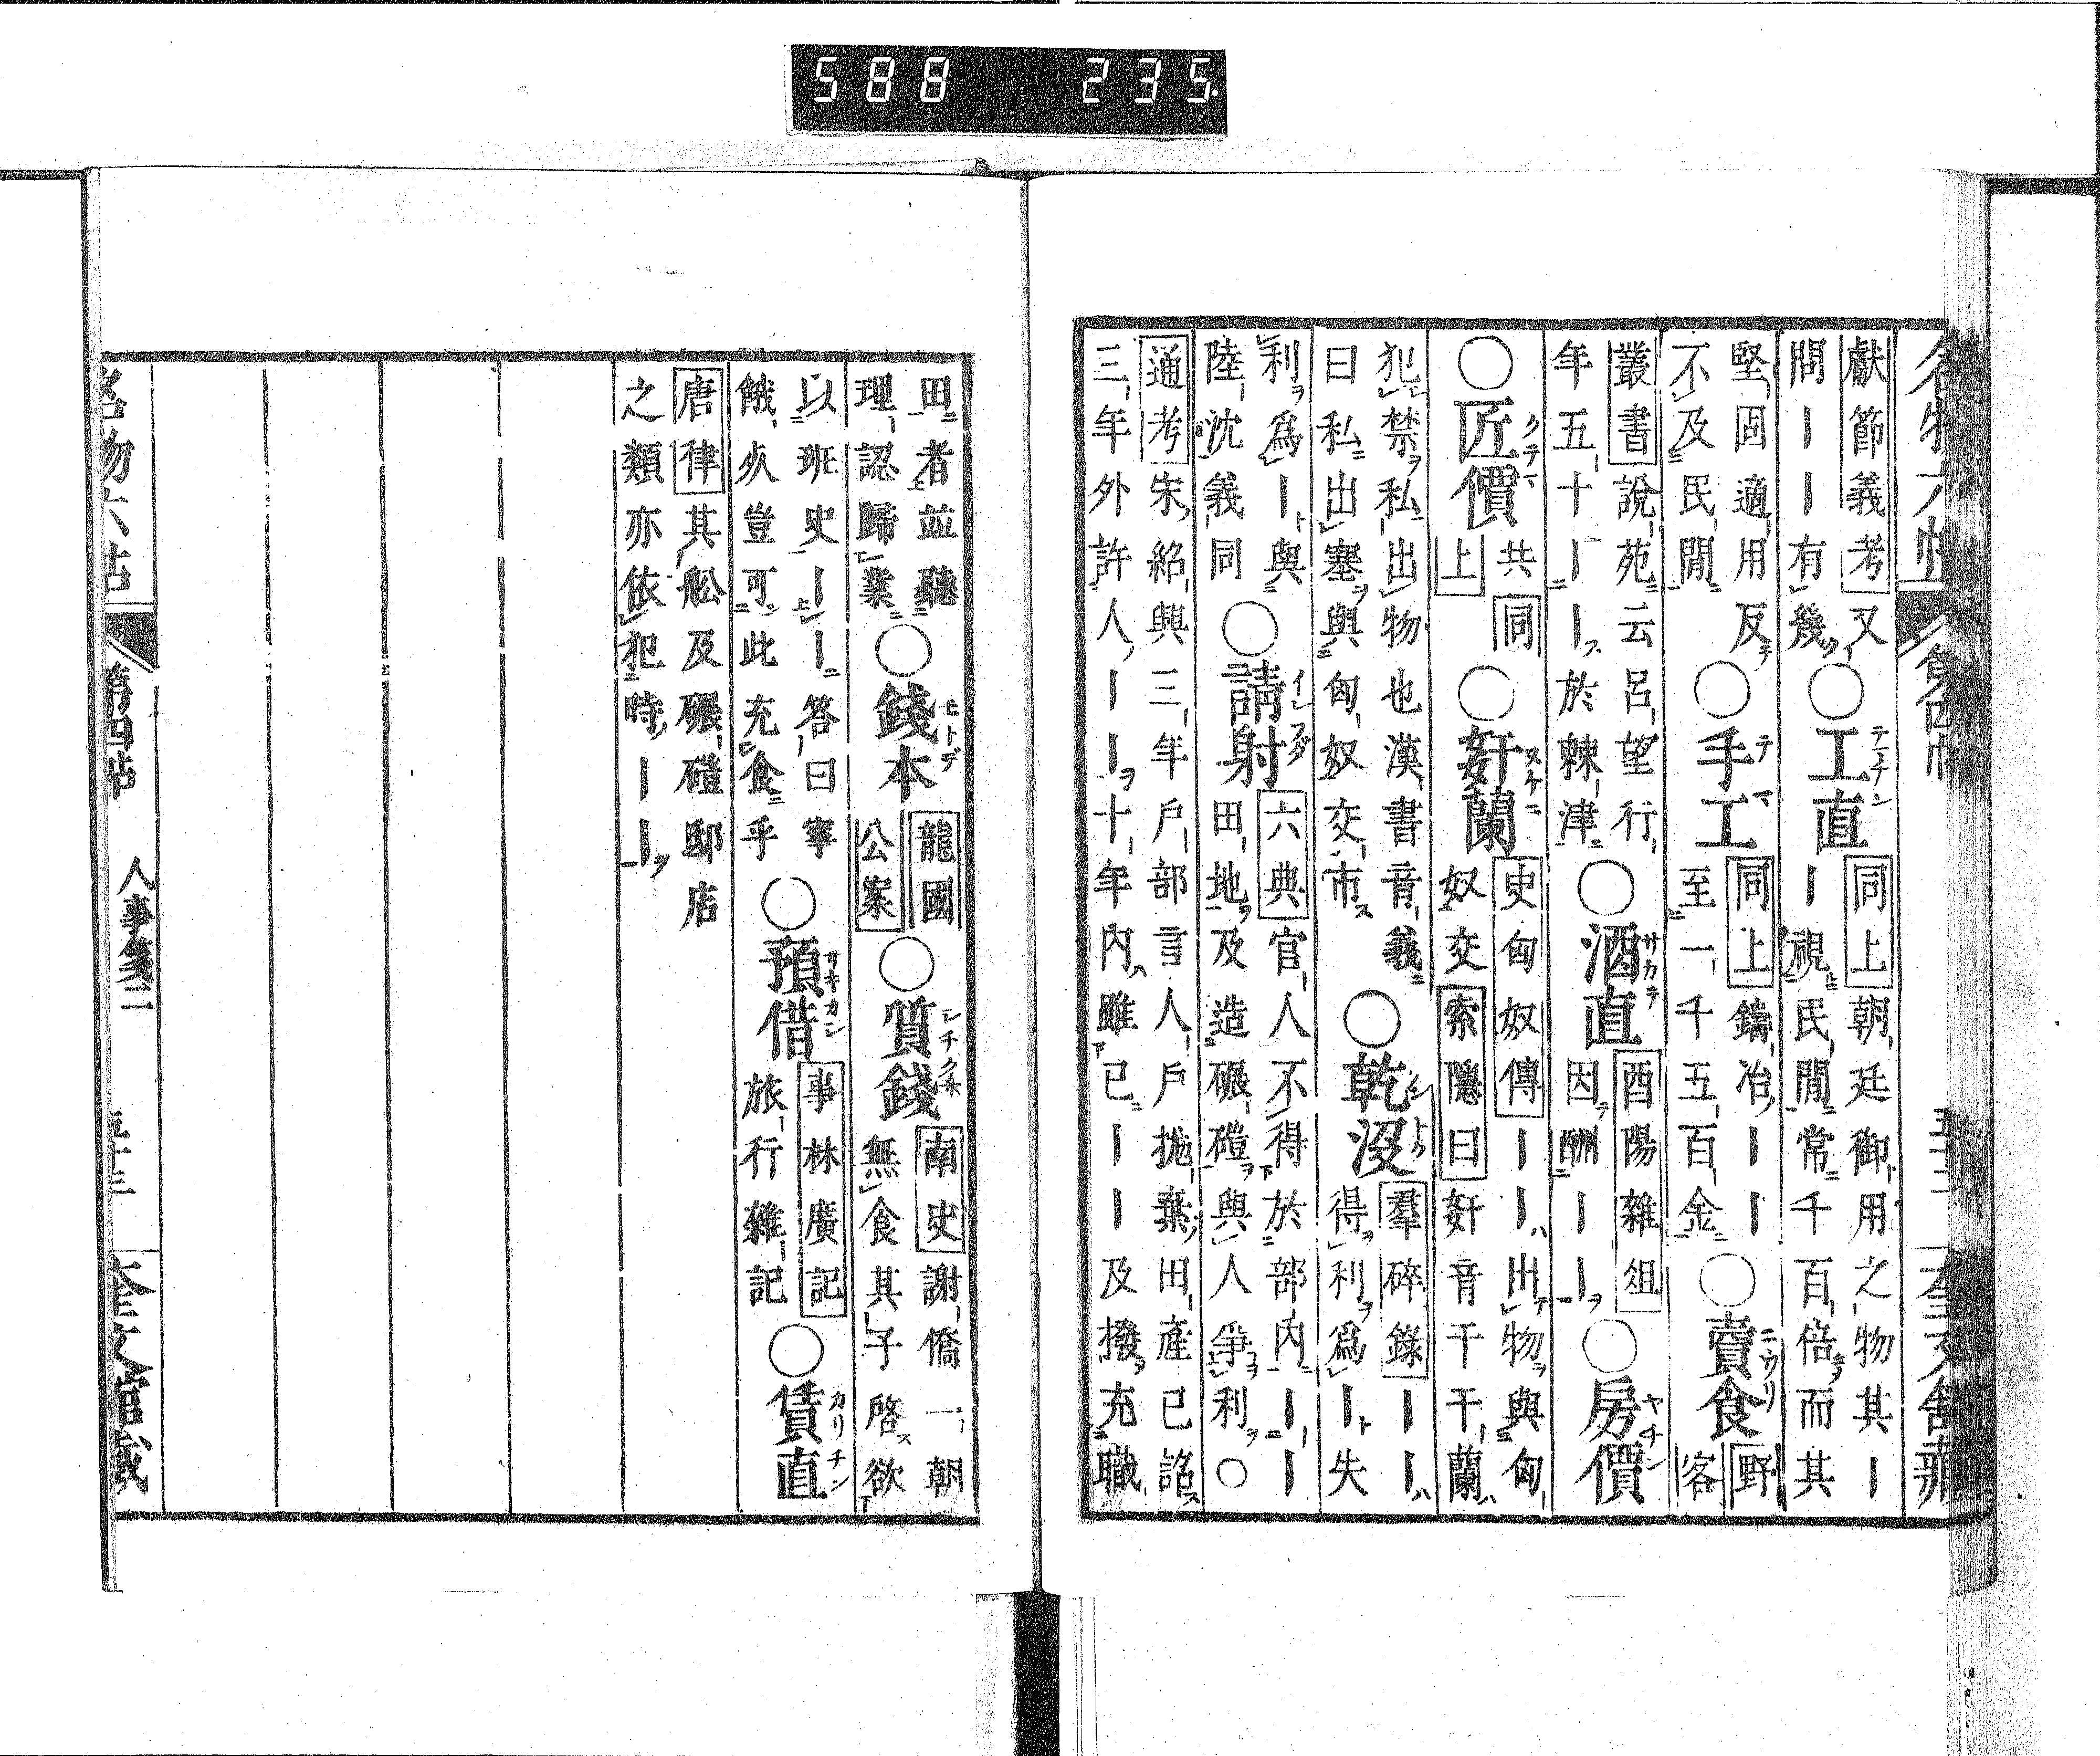 588 235
名物六帖 第四帖 五十二 奎文舘藏
獻節義考又
問｜｜有幾
○工直
同上朝廷御用之物其｜
｜視民閒常千百倍而其
堅固適用反
不及民閒
○手工
同上鑄冶｜｜
至一千五百金
○賣食
野
客
叢書說苑云呂望行
年五十｜｜於棘津
○酒直
酉陽雜俎
因酬｜｜
○房價
○匠價
共同
上
○奸蘭
史匈奴傳｜｜出物與匈
奴交索隱曰奸音干干蘭
犯禁私出物也漢書音義
曰私出塞與匈奴交市
○乾沒
羣碎錄｜｜
得利爲｜失
利爲｜與
陸沈義同
○請射
六典官人不得於部内｜｜
田地及造碾磑與人爭利○
通考宋紹興三年戶部言人戶抛棄田產已詔
三年外許人｜｜十年内雖已｜｜及撥充職
田者並聽
理認歸業
○錢本
龍國
公案
○質錢
南史謝僑一朝
無食其子啓欲
以班史｜｜答曰寧
餓死豈可此充食乎
○預借
事林廣記
旅行雜記
○賃直
唐律其舩及碾磑邸店
之類亦依犯時｜｜
名物六帖 第四帖 人事箋二 五十三 奎文舘藏